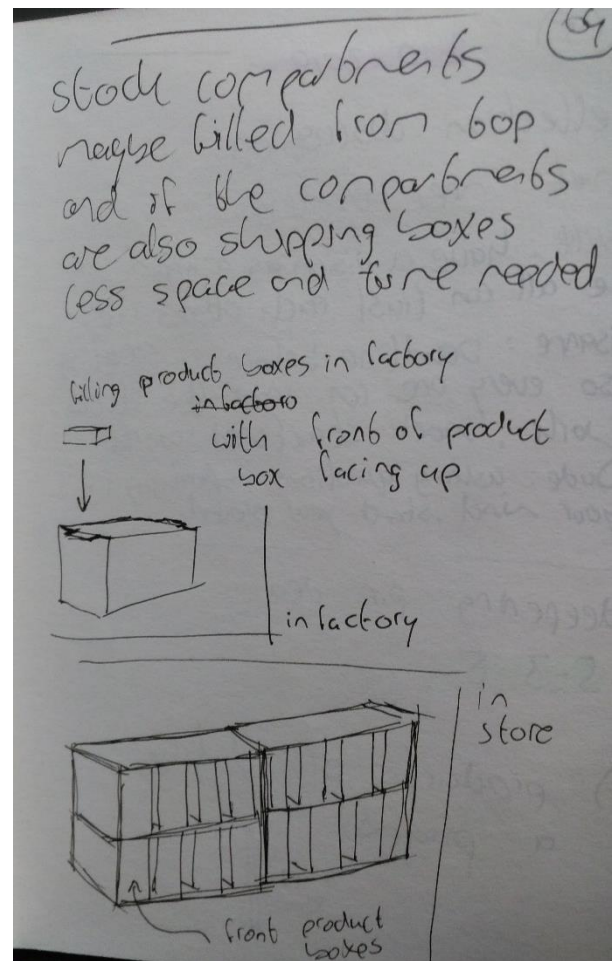 64
stock compartments
maybe filled from top
and if the compartments
are also shipping boxes
less space and time needed
filling product boxes in factory
in factory
with front of product
box facing up
in factory
in
store
front product
boxes